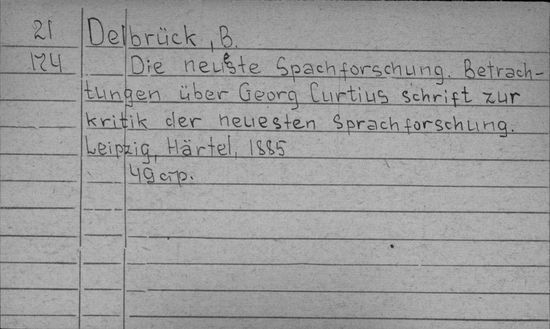 21 Delbrück, B.
174 Die neueste Spachforschung. Betrach-
tungen über Georg Curtius schrift zur
kritik der neuesten Sprachforschung.
Leipzig, Härtel, 1885
49 стр.